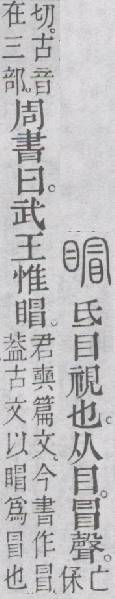 𥈆 氐目視也。从目。冒聲。亡保
切。古音在三部。周書曰。武王惟𥈆。君奭篇文。今書作冒。葢古文以𥈆爲冒也